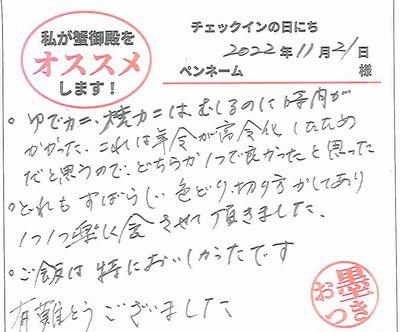 私が蟹御殿を
オススメ
します！
チェックインの日にち
2022年11月21日
ペンネーム
様
。ゆでカニ、焼カニは、むしるのに時間が
かかった、これは年令が高令化したため
だと思うので、どちらか1つで良かったと思った
。どれもすばらしい色どり、切り方がしてあり
1つ1つ楽しく食させて頂きました。
。ご飯は特においしかったです
有難とうございました
墨
おつき